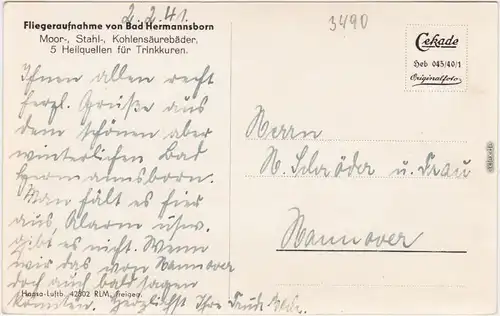 2.2.41.
3490
Fliegeraufnahme von Bad Hermannsborn
Moor-, Stahl-, Kohlensäurebäder,
5 Heilquellen für Trinkkuren.
Cekade
Heb 043/40/1
Originalfoto
Ihnen allen recht
herzl. Grüße aus
dem schönen aber
winterlichen Bad
Hermannsborn.
Man hält es hier
aus, Alarm usw.
gibt es nicht. Wenn
wir das von Hannover
doch auch bald sagen
könnten. Herzlichst Ihre
Herrn
H. Schröder u. Frau
Hannover
Hansa-Luftb. 42802 RLM. freigeg.